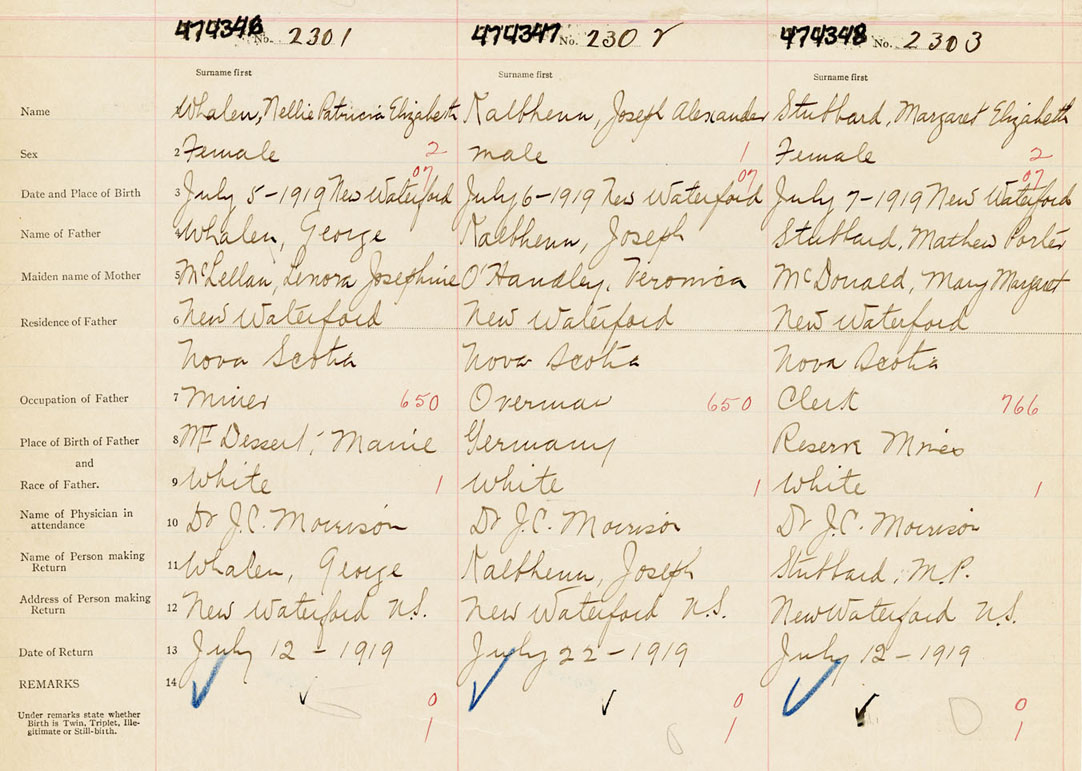 474346 No. 2301 474347 No. 2302 474348 No. 2303
Surname first Surname first Surname first
Name Whalen, Nellie Patricia Elizabeth Kalbhenn, Joseph Alexander Stubbard, Margaret Elizabeth
Sex 2 Female 2 male 1 Female 2
07 07 07
Date and Place of Birth 3 July 5-1919 New Waterford July 6-1919 New Waterford July 7-1919 New Waterford
Name of Father 4 Whalen, George Kalbhenn, Joseph Stubbard, Mathew Porter
Maiden name of Mother 5 McLellan, Lenora Josephine O'Handley, Veronica McDonald, Mary Margaret
Residence of Father 6 New Waterford New Waterford New Waterford
Nova Scotia Nova Scotia Nova Scotia
Occupation of Father 7 Miner 650 Overman 650 Clerk 766
Place of Birth of Father 8 Mt Dessert, Maine Germany Reserve Mines
and
Race of Father. 9 White 1 White 1 White 1
Name of Physician in
attendance 10 Dr J.C. Morrison Dr J.C. Morrison Dr J.C. Morrison
Name of Person making
Return 11 Whalen, George Kalbhenn, Joseph Stubbard, M.P.
Address of Person making
Return 12 New Waterford N.S. New Waterford N.S. New Waterford N.S.
Date of Return 13 July 12-1919 July 22-1919 July 12-1919
REMARKS 14
0 0 0
Under remarks state whether
Birth is Twin, Triplet, Ille-
gitimate or Still-birth. 1 1 1